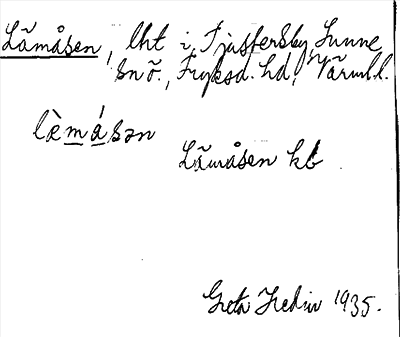 Lämåsen, lht i Tjustersby, Sunne
sn ö., Fryksd. hd, Värml.
lèmásən
Lämåsen kb
Greta Hedin 1935.